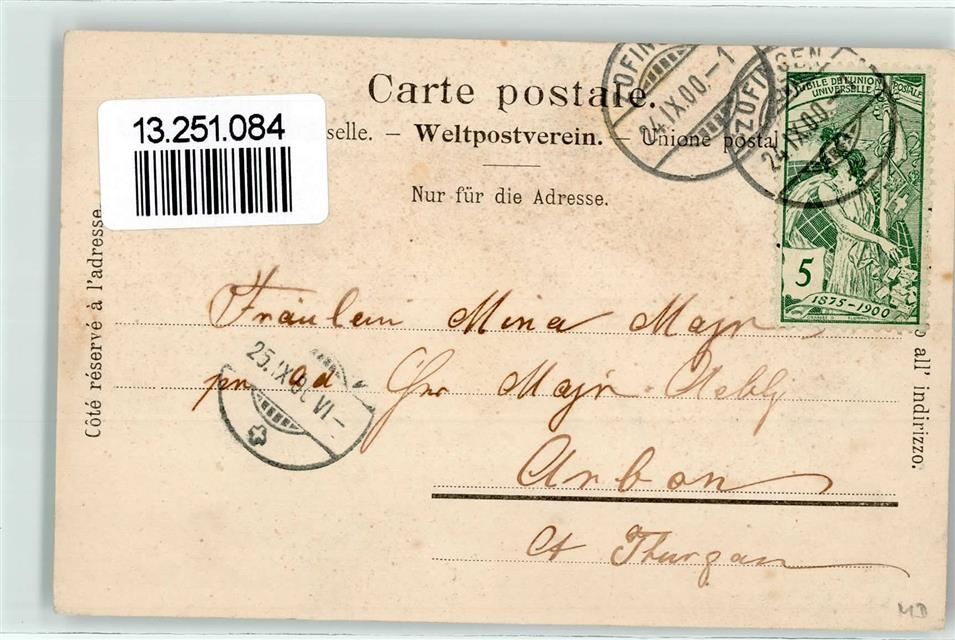 13.251.084
Carte postale.
selle. – Weltpostverein. – Unione postal
Nur für die Adresse.
Côté réservé à l'adresse.
o all' indirizzo.
ZOFINGEN
24.IX.00.–1
ZOFINGEN
24.IX.00.–
JUBILE DE L'UNION POSTALE
UNIVERSELLE
5
1875–1900
Fräulein Mina Majr
pr ad Hrn Majr-Aebly
Arbon
Ct Thurgau
25.IX.00.VI–
MD